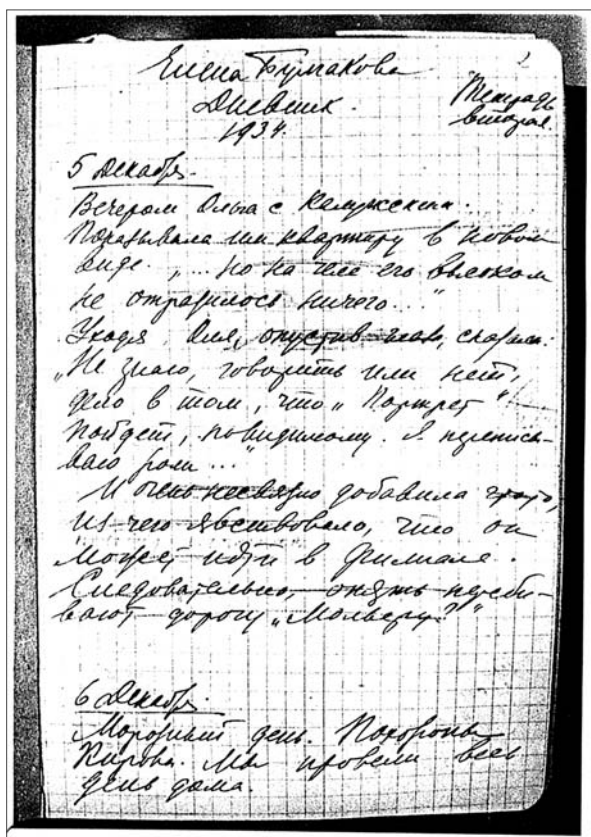 Елена Булгакова
Дневник.
1934.
Тетрадь
вторая.
5 декабря.
Вечером Ольга с Калужским.
Показывала им квартиру в новом
виде. „... но на челе его высоком
не отразилось ничего..."
Уходя, Оля, опустив глаза, сказала:
„Не знаю, говорить или нет,
дело в том, что „Портрет"
пойдет, повидимому. Я переписы-
ваю роли..."
И очень несвязно добавила
из чего явствовало, что он
может идти в филиале.
Следовательно, опять переби-
вают дорогу „Мольеру?"
6 декабря.
Морозный день. Похороны
Кирова. Мы провели весь
день дома.